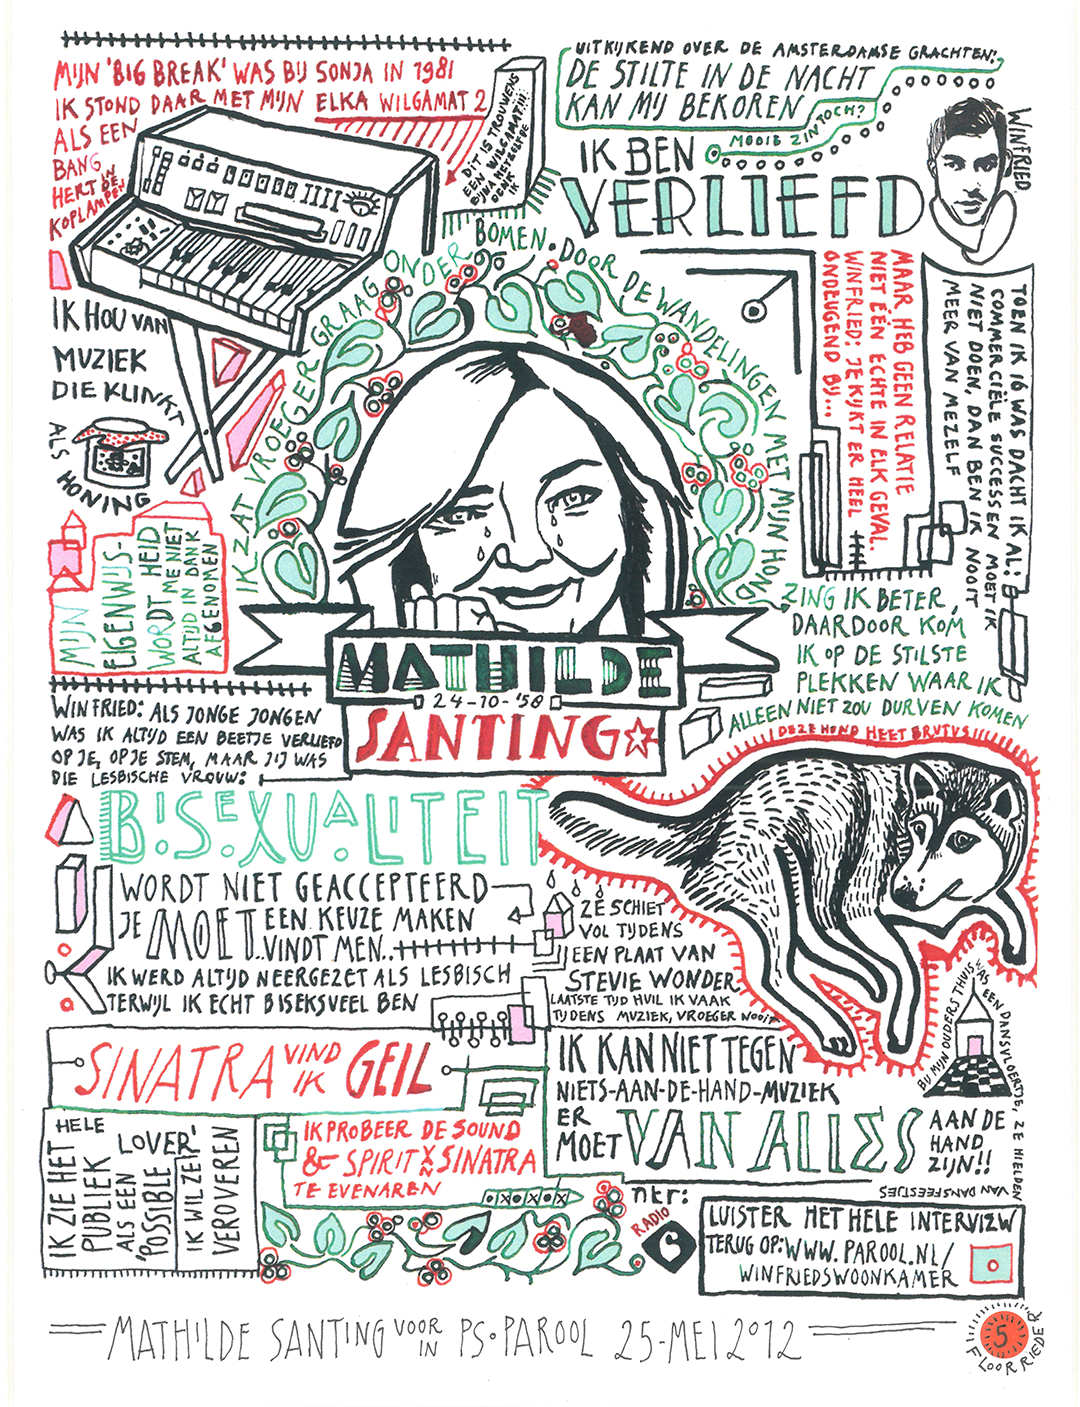 MIJN 'BIG BREAK' WAS BIJ SONJA IN 1981
IK STOND DAAR MET MIJN ELKA WILGAMAT 2
ALS EEN
BANG
HERT IN DE
KOPLAMPEN
DIT IS TROUWENS
EEN WILGAMAT III
BIJNA HETZELFDE
DENK
IK
UITKIJKEND OVER DE AMSTERDAMSE GRACHTEN:
DE STILTE IN DE NACHT
KAN MIJ BEKOREN
MOOIE ZIN TOCH?
IK BEN
VERLIEFD
WINFRIED
MAAR HEB GEEN RELATIE
NIET ÉÉN ECHTE IN ELK GEVAL.
WINFRIED: JE KIJKT ER HEEL
ONDEUGEND BIJ...
TOEN IK 16 WAS DACHT IK AL:
COMMERCIËLE SUCCESSEN MOET IK
NIET DOEN, DAN BEN IK NOOIT
MEER VAN MEZELF
IK ZAT VROEGER GRAAG ONDER BOMEN. DOOR DE WANDELINGEN MET MIJN HOND
ZING IK BETER,
DAARDOOR KOM
IK OP DE STILSTE
PLEKKEN WAAR IK
ALLEEN NIET ZOU DURVEN KOMEN
IK HOU VAN
MUZIEK
DIE KLINKT
ALS
HONING
MIJN
EIGENWIJS-
HEID
WORDT ME NIET
ALTIJD IN DANK
AFGENOMEN
MATHILDE
24-10-'58
SANTING
WINFRIED: ALS JONGE JONGEN
WAS IK ALTIJD EEN BEETJE VERLIEFD
OP JE, OP JE STEM, MAAR JIJ WAS
DIE LESBISCHE VROUW:
BISEXUALITEIT
WORDT NIET GEACCEPTEERD
JE MOET EEN KEUZE MAKEN
..VINDT MEN..
IK WERD ALTIJD NEERGEZET ALS LESBISCH
TERWIJL IK ECHT BISEKSUEEL BEN
DEZE HOND HEET BRUTUS
ZE SCHIET
VOL TIJDENS
EEN PLAAT VAN
STEVIE WONDER
LAATSTE TIJD HUIL IK VAAK
TIJDENS MUZIEK, VROEGER NOOIT
BIJ MIJN OUDERS THUIS WAS EEN DANSVLOERTJE, ZE HIELDEN
VAN DANSFEESTJES
SINATRA VIND IK GEIL
IK KAN NIET TEGEN
NIETS-AAN-DE-HAND-MUZIEK
ER
MOET VAN ALLES AAN DE
HAND
ZIJN!!
IK ZIE HET
HELE
PUBLIEK
ALS EEN
'POSSIBLE
LOVER'
IK WIL ZE
VEROVEREN
IK PROBEER DE SOUND
& SPIRIT VAN SINATRA
TE EVENAREN
NTR:
RADIO
6
LUISTER HET HELE INTERVIEW
TERUG OP: WWW.PAROOL.NL/
WINFRIEDSWOONKAMER
MATHILDE SANTING VOOR IN PS•PAROOL 25-MEI 2012
5
FLOOR RIEDER